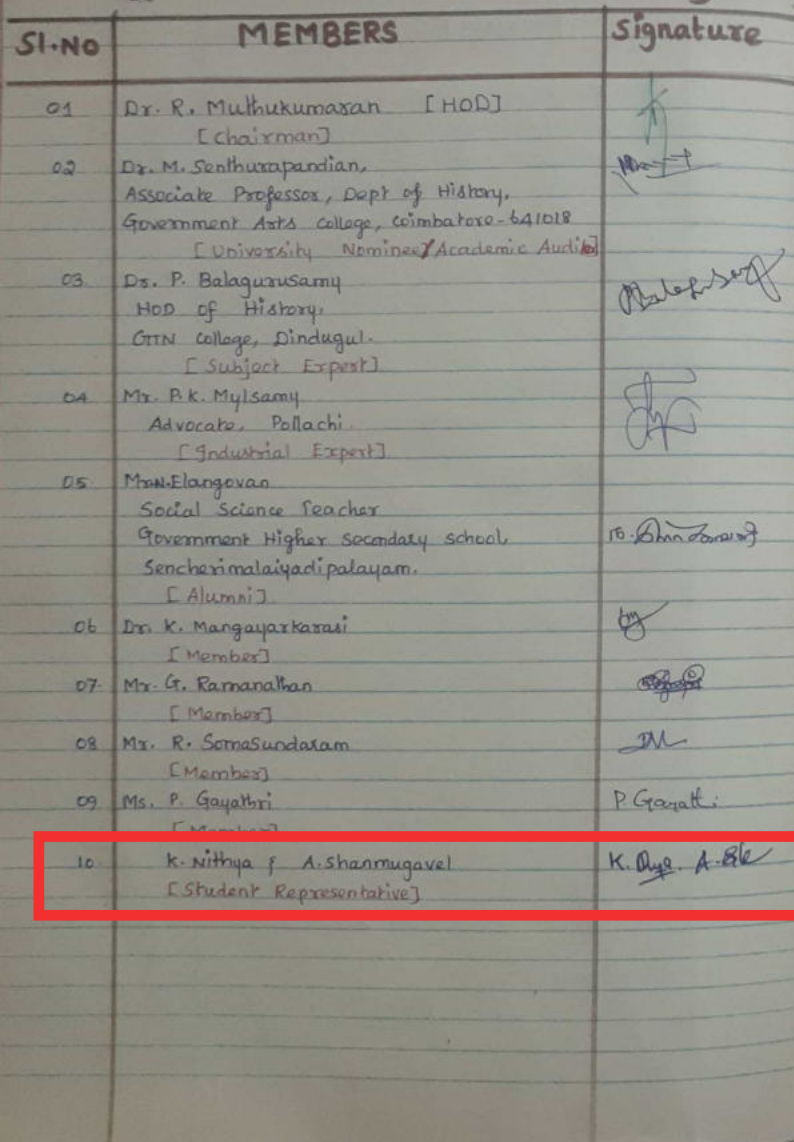 Sl.No MEMBERS Signature
01 Dr. R. Muthukumaran [HOD]
[Chairman]
02 Dr. M. Senthurapandian,
Associate Professor, Dept of History,
Government Arts College, Coimbatore-641018
[University Nominee/Academic Audit]
03 Dr. P. Balagurusamy
HOD of History,
GTN College, Dindugul.
[Subject Expert]
04 Mr. P.K. Mylsamy
Advocate, Pollachi.
[Industrial Expert]
05 Mr.N.Elangovan
Social Science Teacher
Government Higher Secondary School,
Sencherimalaiyadipalayam.
[Alumni]
06 Dr. K. Mangayarkarasi
[Member]
07 Mr. G. Ramanathan
[Member]
08 Mr. R. Somasundaram
[Member]
09 Ms. P. Gayathri P. Gayatti
[Member]
10 K. Nithya & A. Shanmugavel K. A.
[Student Representative]